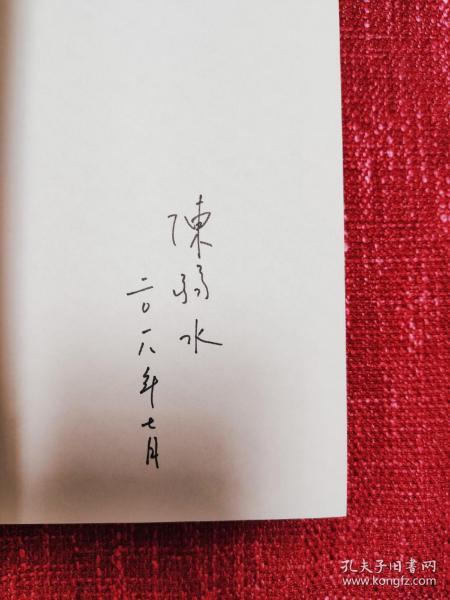 陳弱水
二〇一八年七月
孔夫子旧书网
www.kongfz.com